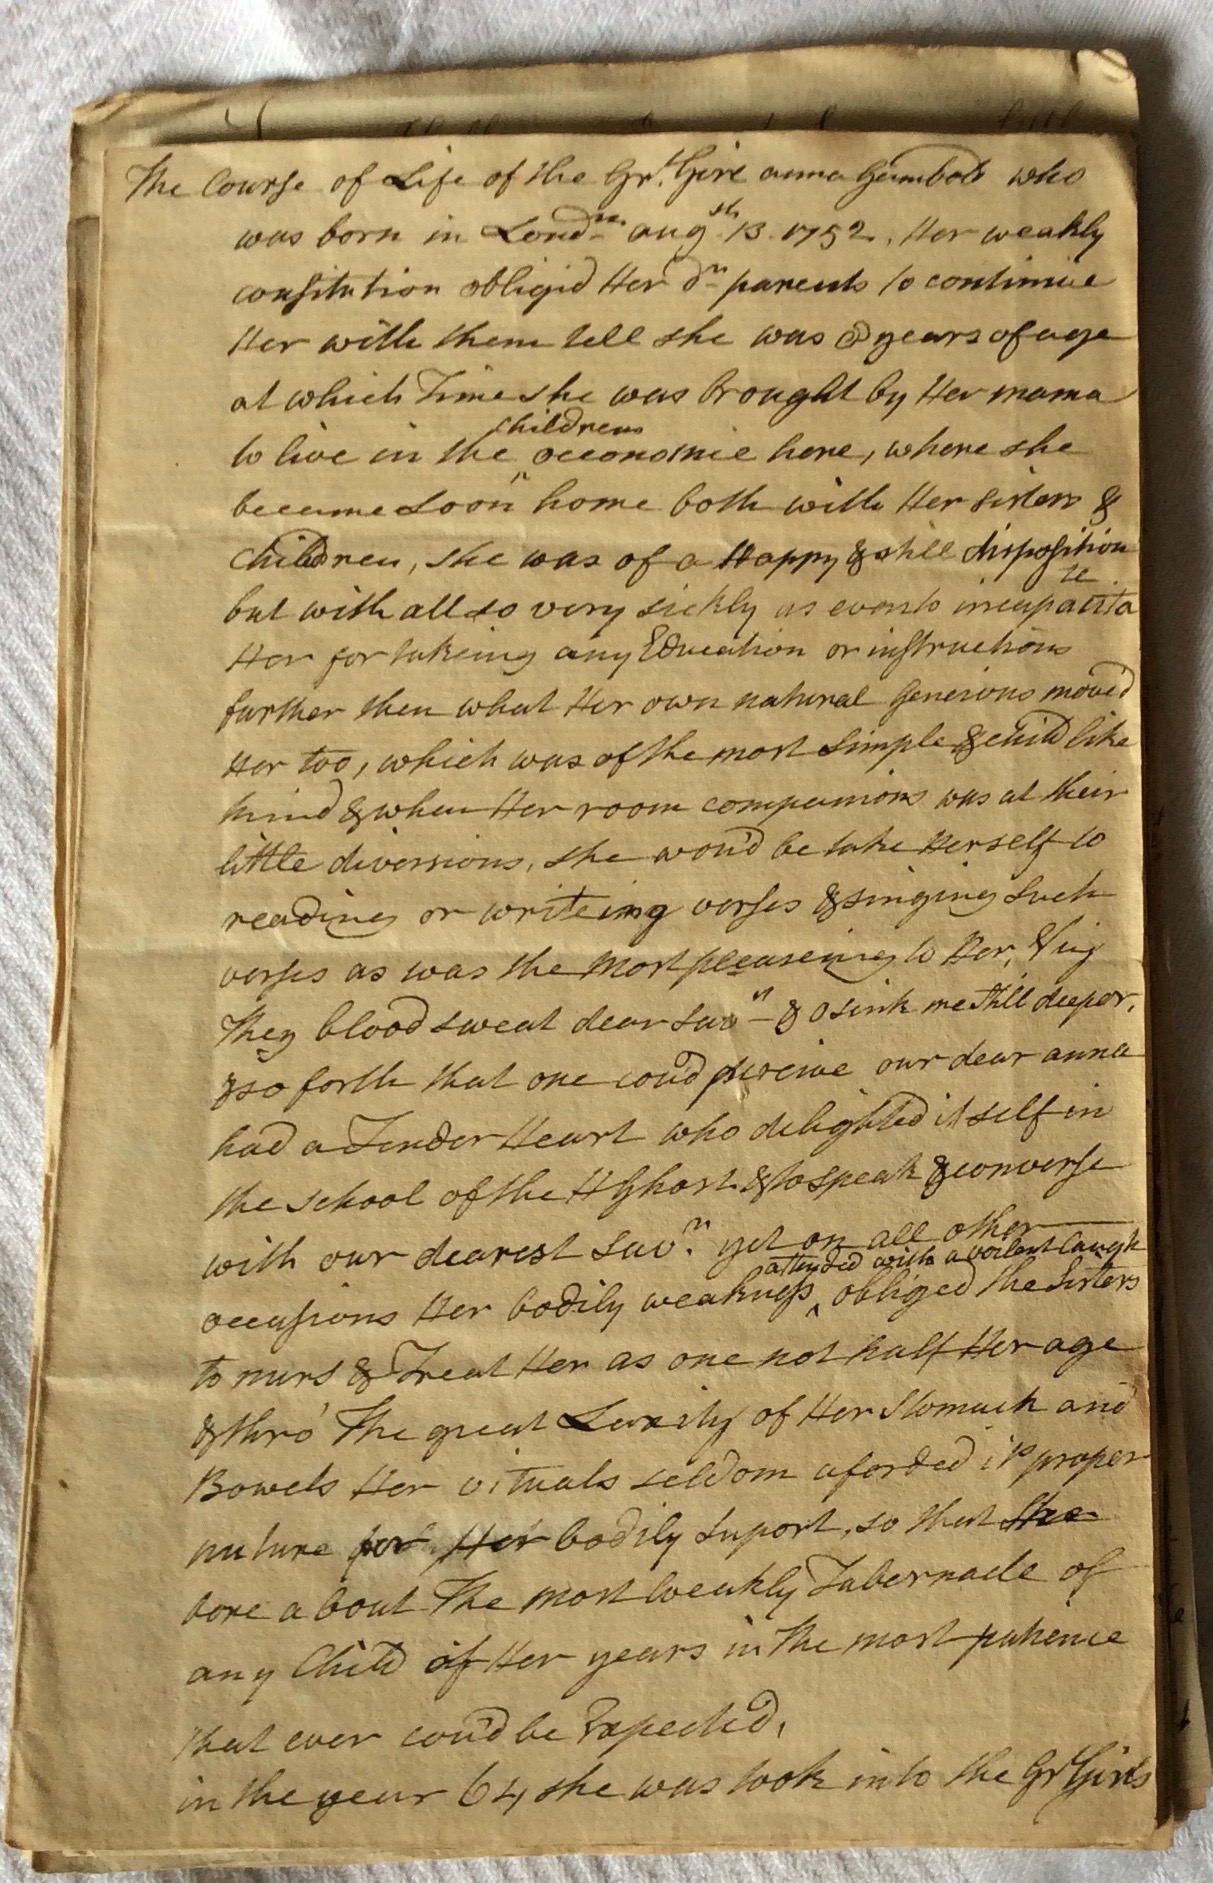 The Course of Life of the Grt. Girl anna Gambold who
was born in Londn. augst 13. 1752, Her weakly
consitution obligid Her dr parents to continue
Her with them tell she was 8 years of age
at which Time she was brought by Her mama
to live in the childrens oeconomie here, where she
became soon home both with Her sisters &
children, she was of a Happy & still disposition
but with all so very sickly as even to incapacitate
Her for takeing any Education or instructions
further then what Her own natural Generious move'd
Her too, which was of the most simple & child like
kind & when Her room companions was at their
little diversions, she wou'd be take Herself to
reading or writeing verses & singing such
verses as was the most pleaseing to Her, Viz
They blood sweat dear Savr & o sink me still deeper,
& so forth that one cou'd perceive our dear anna
had a Tender Heart who delighted it self in
the school of the H Ghost & to speak & converse
with our dearest Savr. yet on all other
occasions Her bodily weakness attended with a voilent Caugh obliged the Sisters
to nurs & Treat Her as one not half Her age
& thro' The great Laxity of Her Stomach and
Bowels Her vituals seldom aforded its proper
nuture for Her bodily suport, so that she
bore a bout The most weakly Tabernacle of
any Child of Her years in The most patience
that ever cou'd be Expected,
in the year 64, she was took into the Grt Girls